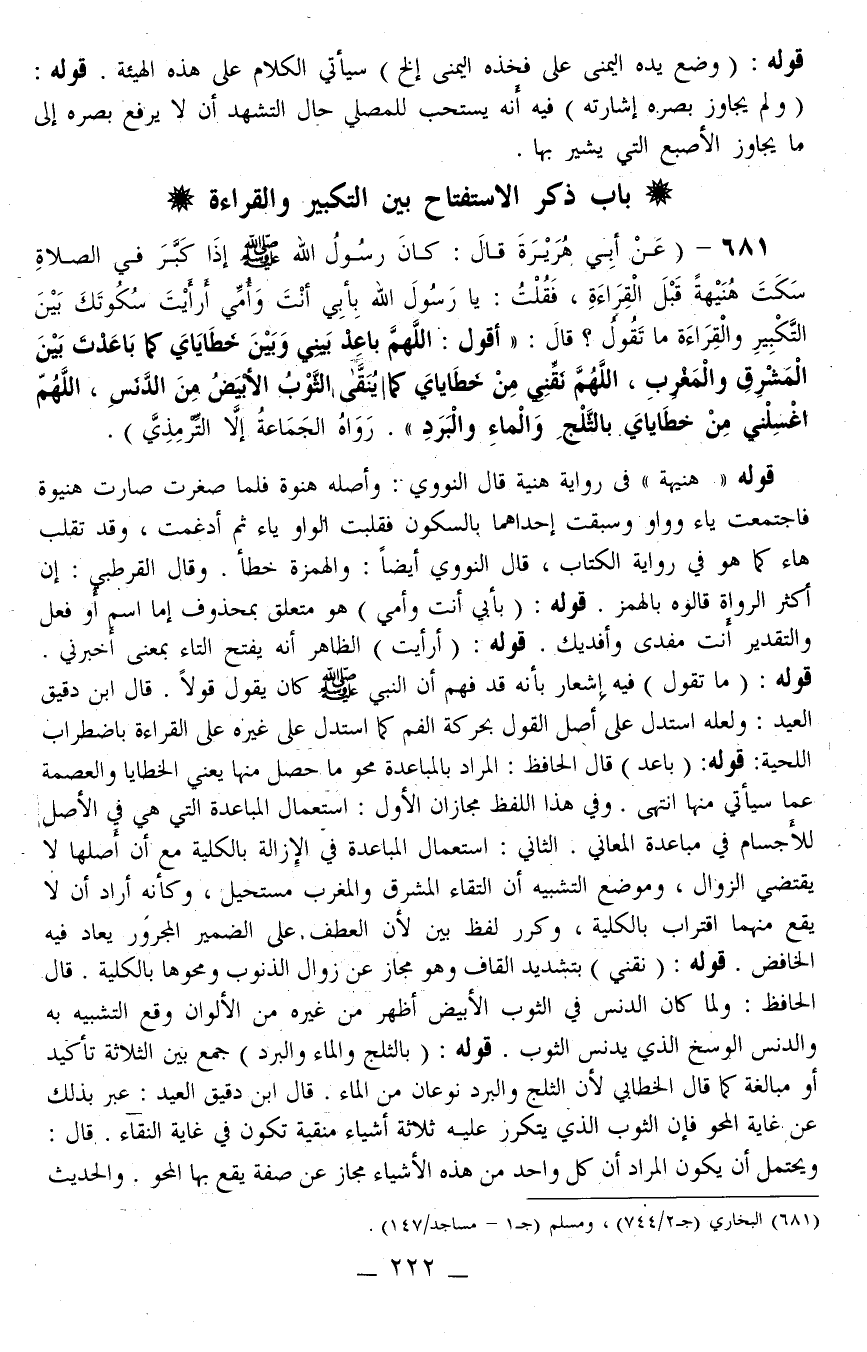 قوله : ( وضع يده اليمنى على فخذه اليمنى إلخ ) سيأتي الكلام على هذه الهيئة . قوله :
( ولم يجاوز بصره إشارته ) فيه أنه يستحب للمصلي حال التشهد أن لا يرفع بصره إلى
ما يجاوز الأصبع التي يشير بها .
باب ذكر الاستفتاح بين التكبير والقراءة
٦٨١ – ( عَنْ أَبِي هُرَيْرَةَ قالَ : كانَ رسُولُ الله ﷺ إِذَا كَبَّرَ في الصلاةِ
سَكَتَ هُنَيْهةً قَبْلَ القِرَاءَةِ ، فَقُلْتُ : يا رَسُولَ الله بأبي أنْتَ وَأُمِّي أَرَأَيْتَ سُكُوتَكَ بَيْنَ
التَّكْبِيرِ والْقِرَاءَة ما تَقُولُ ؟ قالَ : « أقول : اللهمَّ باعِدْ بَيني وَبَيْنَ خَطايايَ كما بَاعَدْتَ بَيْنَ
الْمَشْرِقِ والْمَغْرِبِ ، اللَّهُمَّ نَقِّنِي مِنْ خَطايايَ كما يُنَقَّى الثَّوْبُ الأبْيَضُ مِنَ الدَّنَسِ ، اللَّهُمّ
اغْسِلْني مِنْ خطايايَ بالثَّلْجِ وَالْماءِ والْبَرَدِ » . رَوَاهُ الجَماعةُ إلَّا التِّرْمِذِيَّ ) .
قوله « هنيهة » فى رواية هنية قال النووي : وأصله هنوة فلما صغرت صارت هنيوة
فاجتمعت ياء وواو وسبقت إحداهما بالسكون فقلبت الواو ياء ثم أدغمت ، وقد تقلب
هاء كما هو في رواية الكتاب ، قال النووي أيضاً : والهمزة خطأ . وقال القرطبي : إن
أكثر الرواة قالوه بالهمز . قوله : ( بأبي أنت وأمي ) هو متعلق بمحذوف إما اسم أو فعل
والتقدير أنت مفدى وأفديك . قوله : ( أرأيت ) الظاهر أنه يفتح التاء بمعنى أخبرني .
قوله : ( ما تقول ) فيه إشعار بأنه قد فهم أن النبي ﷺ كان يقول قولاً . قال ابن دقيق
العيد : ولعله استدل على أصل القول بحركة الفم كما استدل على غيره على القراءة باضطراب
اللحية: قوله: ( باعد ) قال الحافظ : المراد بالمباعدة محو ما حصل منها يعني الخطايا والعصمة
عما سيأتي منها انتهى . وفي هذا اللفظ مجازان الأول : استعمال المباعدة التي هي في الأصل
للأجسام في مباعدة المعاني . الثاني : استعمال المباعدة في الإزالة بالكلية مع أن أصلها لا
يقتضي الزوال ، وموضع التشبيه أن التقاء المشرق والمغرب مستحيل ، وكأنه أراد أن لا
يقع منهما اقتراب بالكلية ، وكرر لفظ بين لأن العطف على الضمير المجرور يعاد فيه
الخافض . قوله : ( نقني ) بتشديد القاف وهو مجاز عن زوال الذنوب ومحوها بالكلية . قال
الحافظ : ولما كان الدنس في الثوب الأبيض أظهر من غيره من الألوان وقع التشبيه به
والدنس الوسخ الذي يدنس الثوب . قوله : ( بالثلج والماء والبرد ) جمع بين الثلاثة تأكيد
أو مبالغة كما قال الخطابي لأن الثلج والبرد نوعان من الماء . قال ابن دقيق العيد : عبر بذلك
عن غاية المحو فإن الثوب الذي يتكرز عليه ثلاثة أشياء منقية تكون في غاية النقاء . قال :
ويحتمل أن يكون المراد أن كل واحد من هذه الأشياء مجاز عن صفة يقع بها المحو . والحديث
(٦٨١) البخاري (جـ٧٤٤/٢) ، ومسلم (جـ١ – مساجد/١٤٧) .
_ ٢٢٢ _